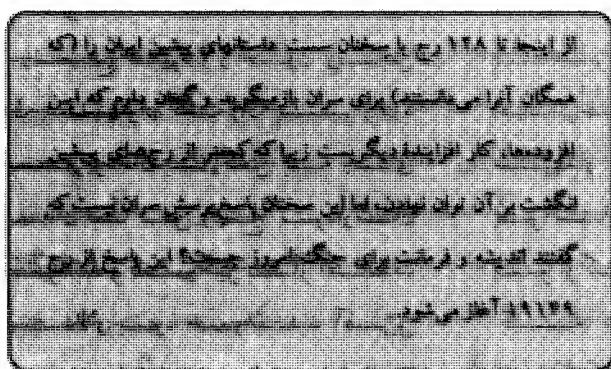 از اینجا تا ۱۲۸ رج با سخنان سست داستانهای پیشین ایران را (که
همگان آنرا می‌دانستند) برای سران بازمیگوید و گمان دارم که این
افزوده‌ها، کار افزایندهٔ دیگریست زیرا که کمتر از رج‌های پیشین
انگشت بر آن توان نهادن، اما این سخنان پاسخ پرسش سران نیست که
گفتند اندیشه و فرمانت برای جنگ امروز چیست؟ این پاسخ از رج
۱۹۱۳۹ آغاز می‌شود.